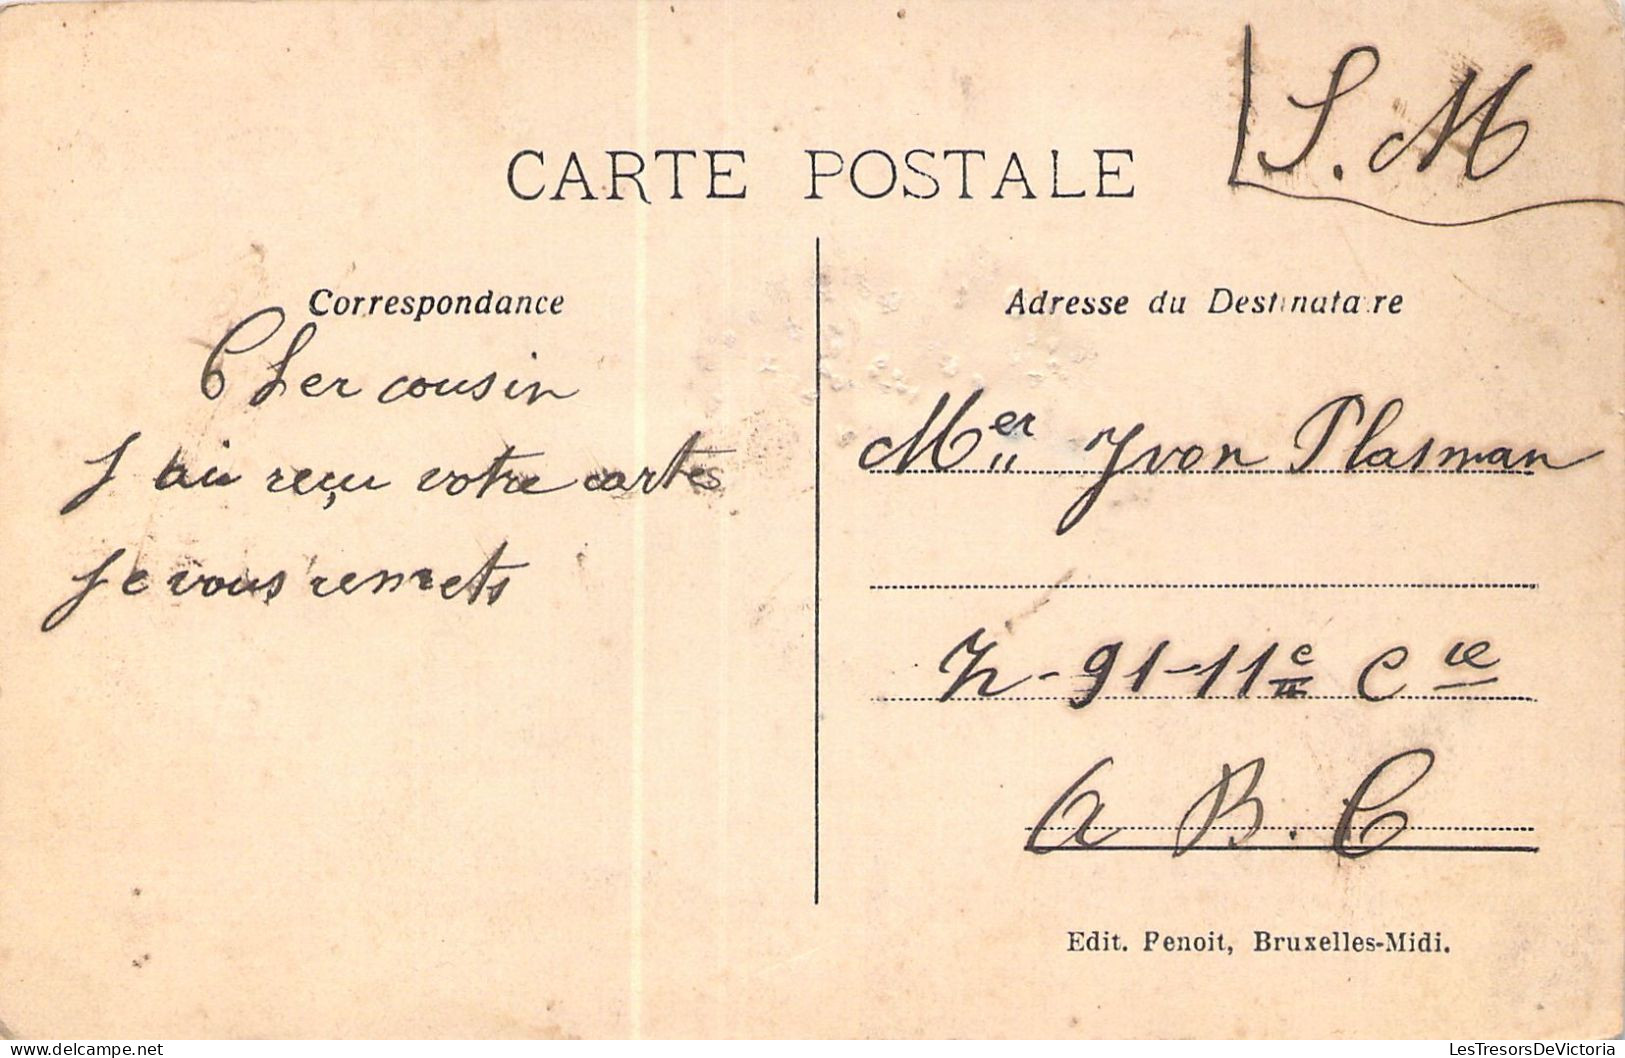 S. M
CARTE POSTALE
Correspondance
Cher cousin
J ai reçu votre carte
Je vous remets
Adresse du Destinataire
Mer Yvon Plasman
Z-91-11e Cie
A B. C
Edit. Penoit, Bruxelles-Midi.
LesTresorsDeVictoria